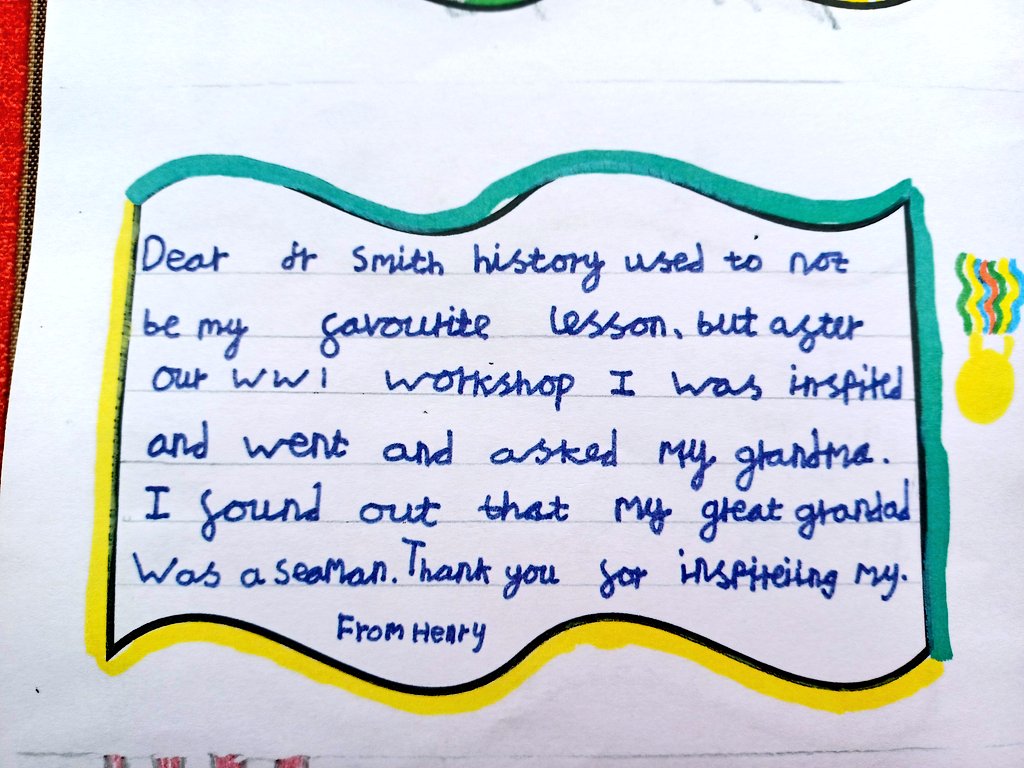 Dear dr Smith history used to not
be my favourite lesson, but after
our WW1 workshop I was inspired
and went and asked my grandma.
I found out that my great grandad
was a seaman. Thank you for inspireiing my.
From Henry